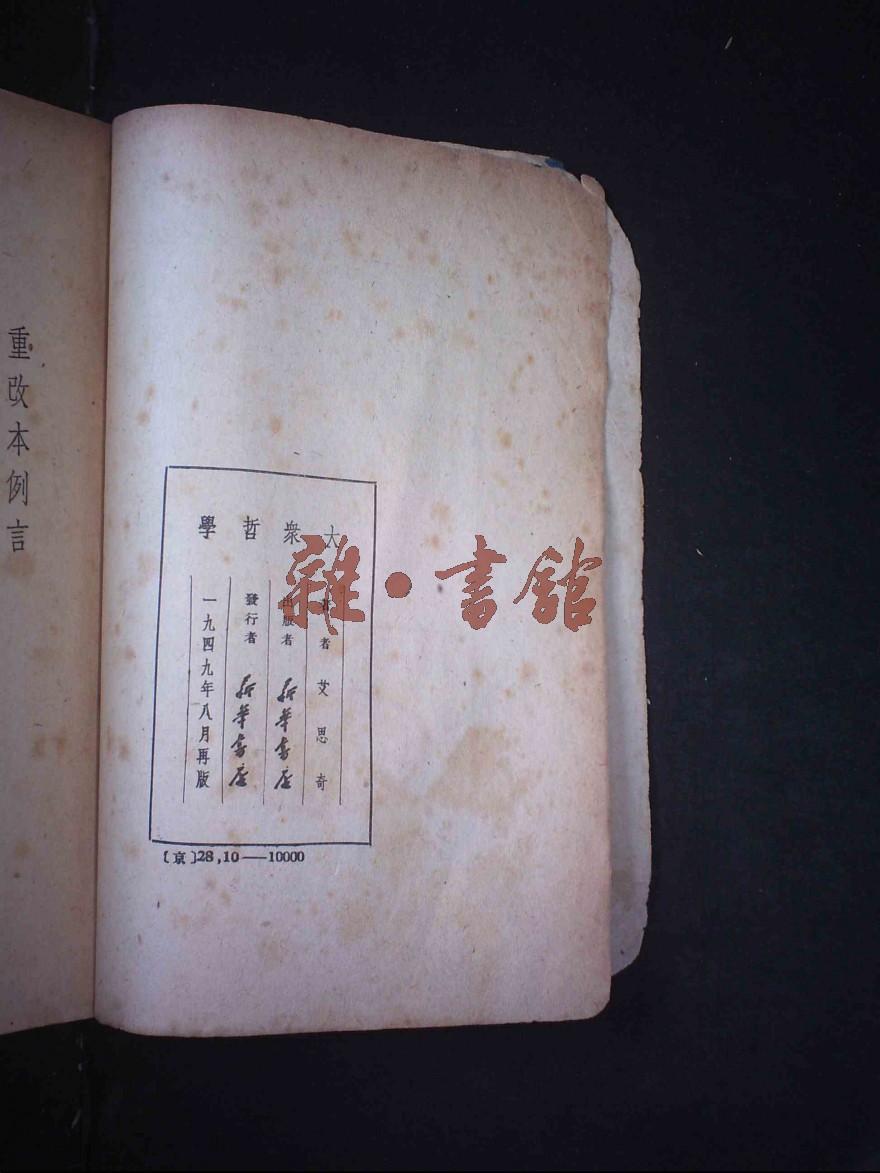 重改本例言
大衆哲學
著者 艾思奇
出版者 新華書店
發行者 新華書店
一九四九年八月再版
〔京〕28,10——10000
雜·書館